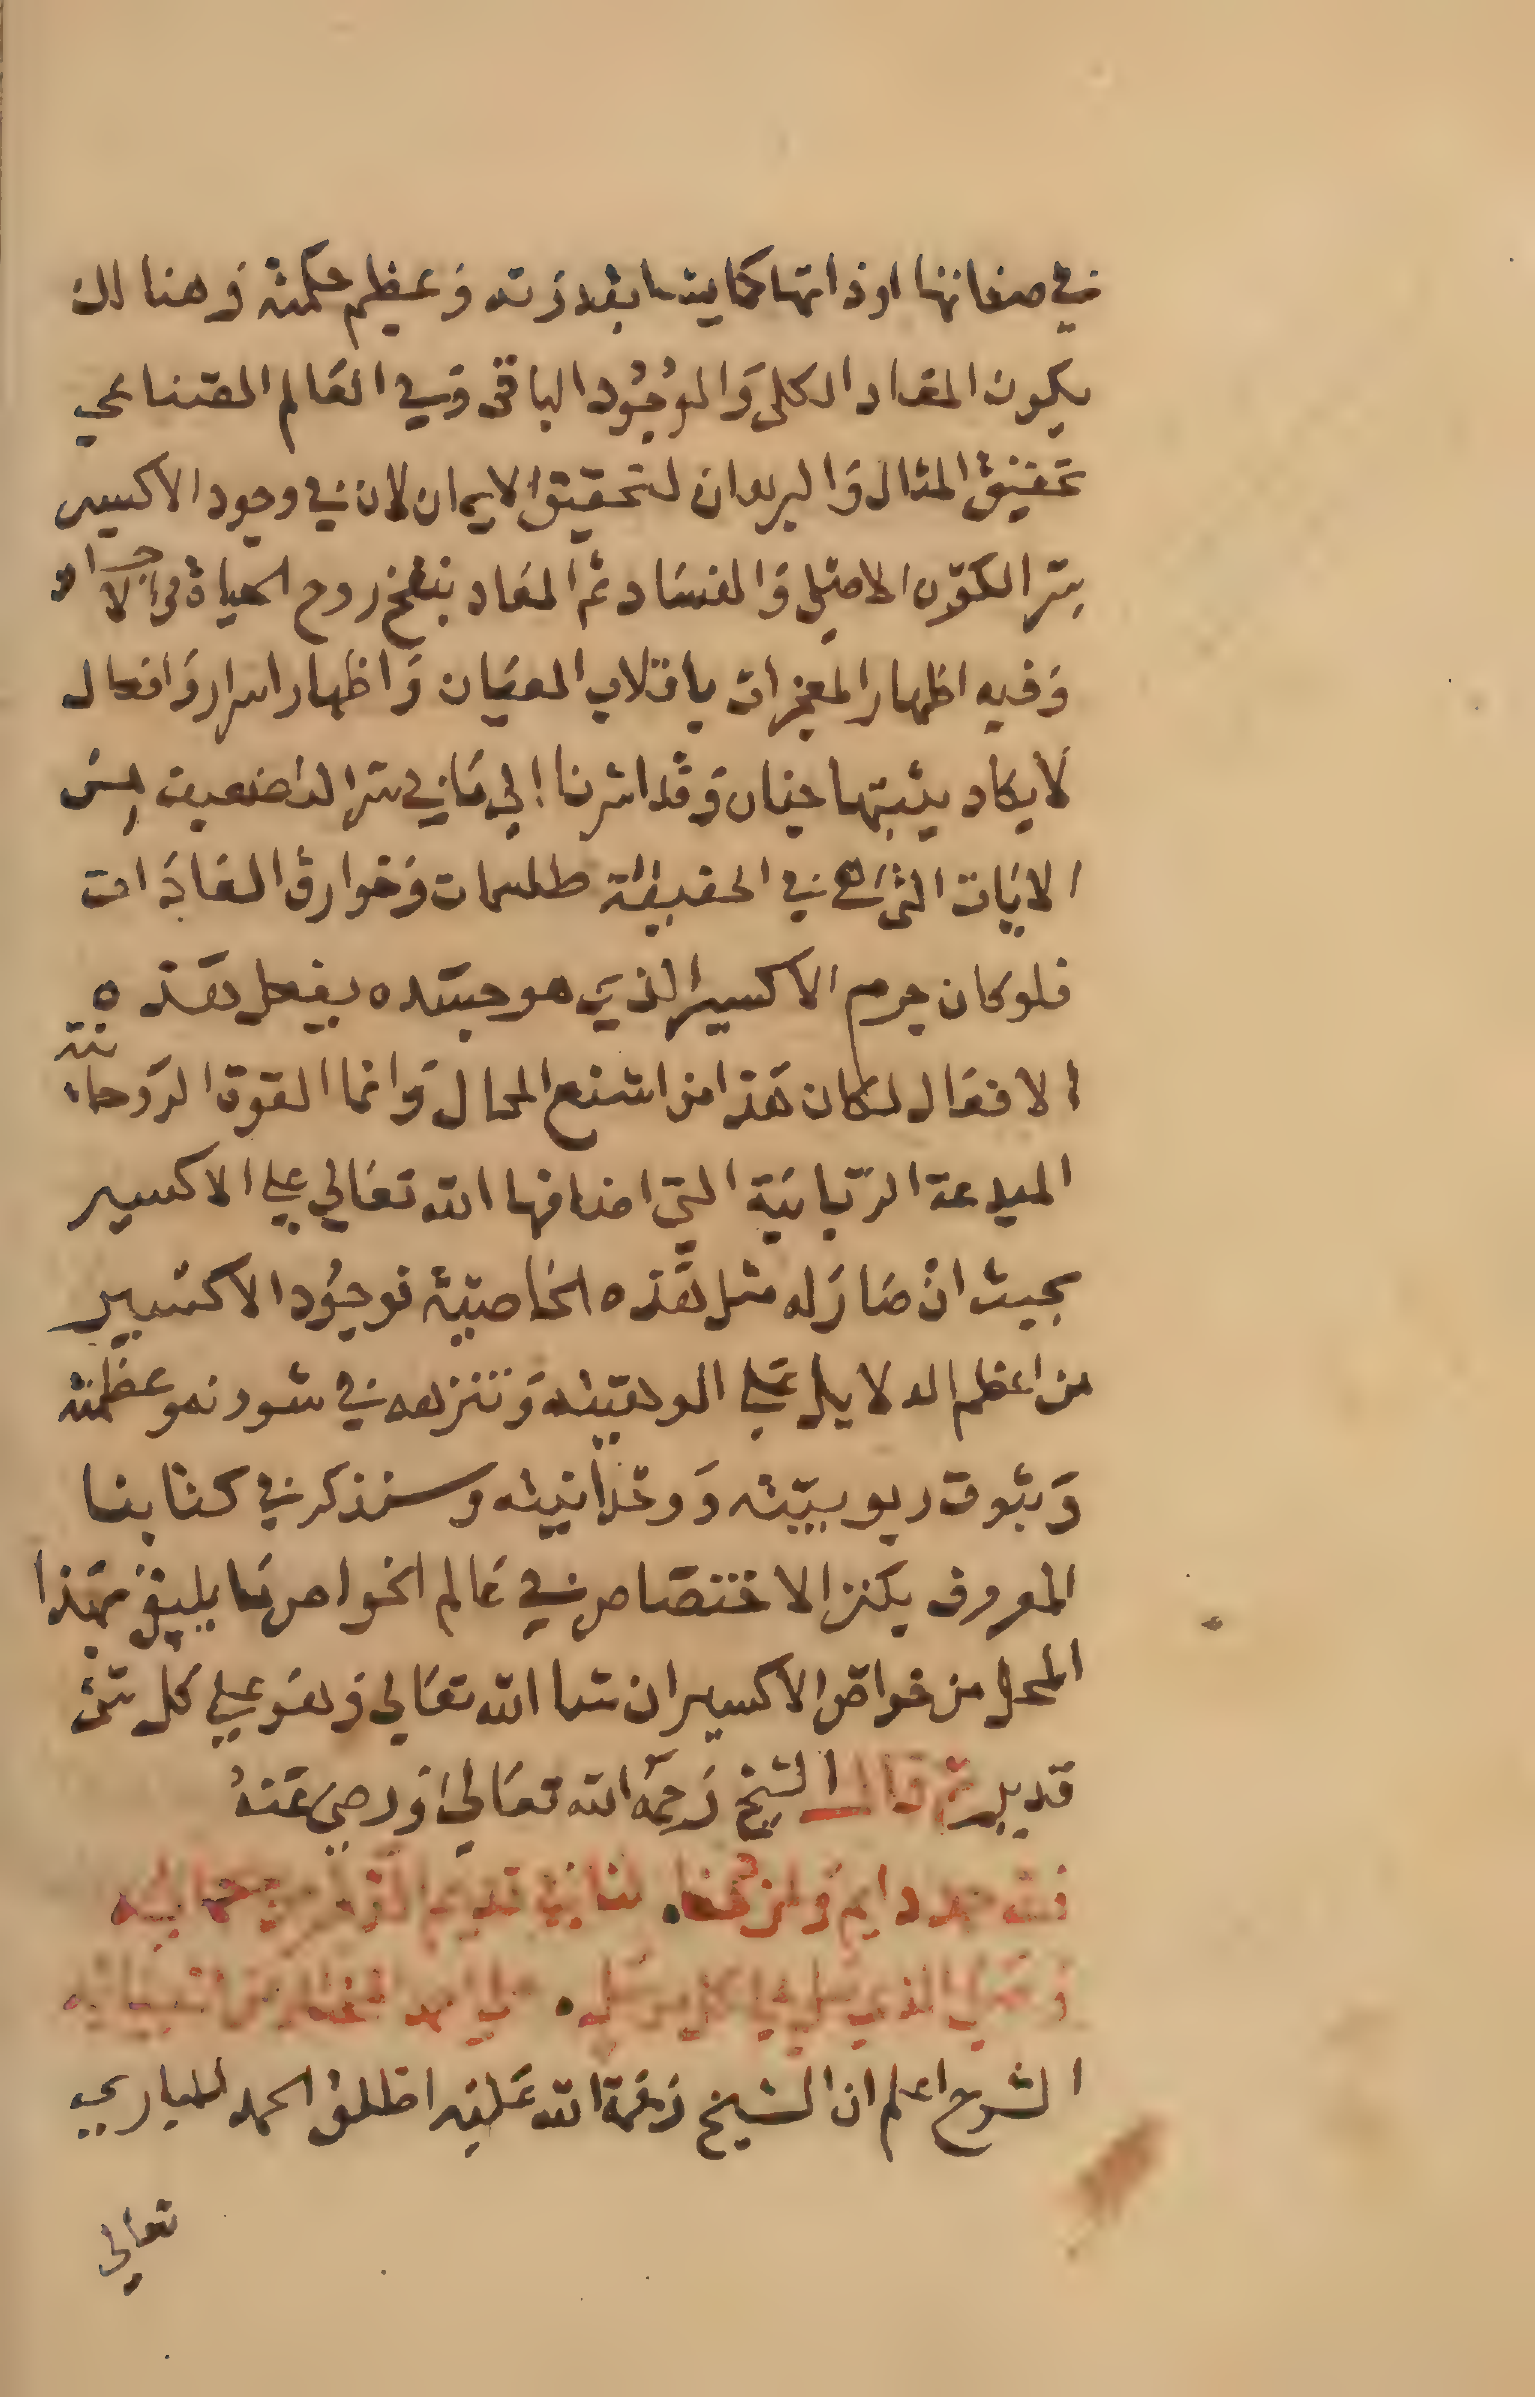 في صفاتها او ذاتها كما يشا بقدرته وعظيم حكمته وهنالك
يكون المعاد الكلي والوجود الباقي وفي العالم الصناعي
تحقيق المثال والبرهان لتحقيق الايمان لان في وجود الاكسير
سر التكون الاصلي والفساد ثم المعاد بنفخ روح الحياة في الاجساد
وفيه اظهار المعجزات باقلاب العيان واظهار اسرار وافعال
لا يكاد يثبتها جنان وقد اشرنا الي ما في سر التضعيف من
الايات التي هي في الحقيقة طلسمات وخوارق العادات
فلو كان جرم الاكسير الذي هو جسده يفعل هذه
الافعال لكان هذا من اشنع المحال وانما القوة الروحانية
المبدعة الربانية التي اضافها الله تعالي علي الاكسير
بحيث ان صار له مثل هذه الخاصية فوجود الاكسير
من اعظم الدلايل علي الوهيته وتنزهه في شونه وعظمته
وثبوت ربوبيته ووحدانيته وسنذكر في كتابنا
المعروف بكنز الاختصاص في عالم الخواص ما يليق بهذا
المحل من خواص الاكسير ان شا الله تعالي وهو علي كل شي
قدير ثم قال الشيخ رحمه الله تعالي ورضي عنه
فلله حمد دايم
الشرح اعلم ان الشيخ رحمة الله عليه اطلق الحمد للباري
تعالي